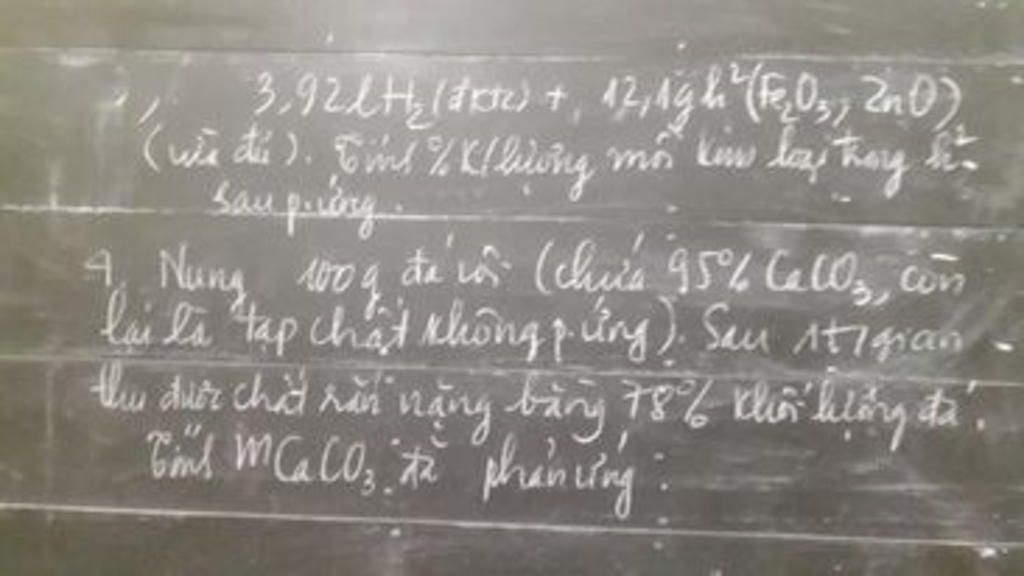 , 3,92l H₂ (đktc) + 12,1g h² (Fe₂O₃, ZnO)
(vừa đủ). Tính % K/lượng mỗi kim loại trong h²
sau p.ứng.
4, Nung 100g đá vôi (chứa 95% CaCO₃, còn
lại là tạp chất không p.ứng). Sau 1 t/gian
thu được chất rắn nặng bằng 78% khối lượng đá.
Tính mCaCO₃ đã phản ứng: